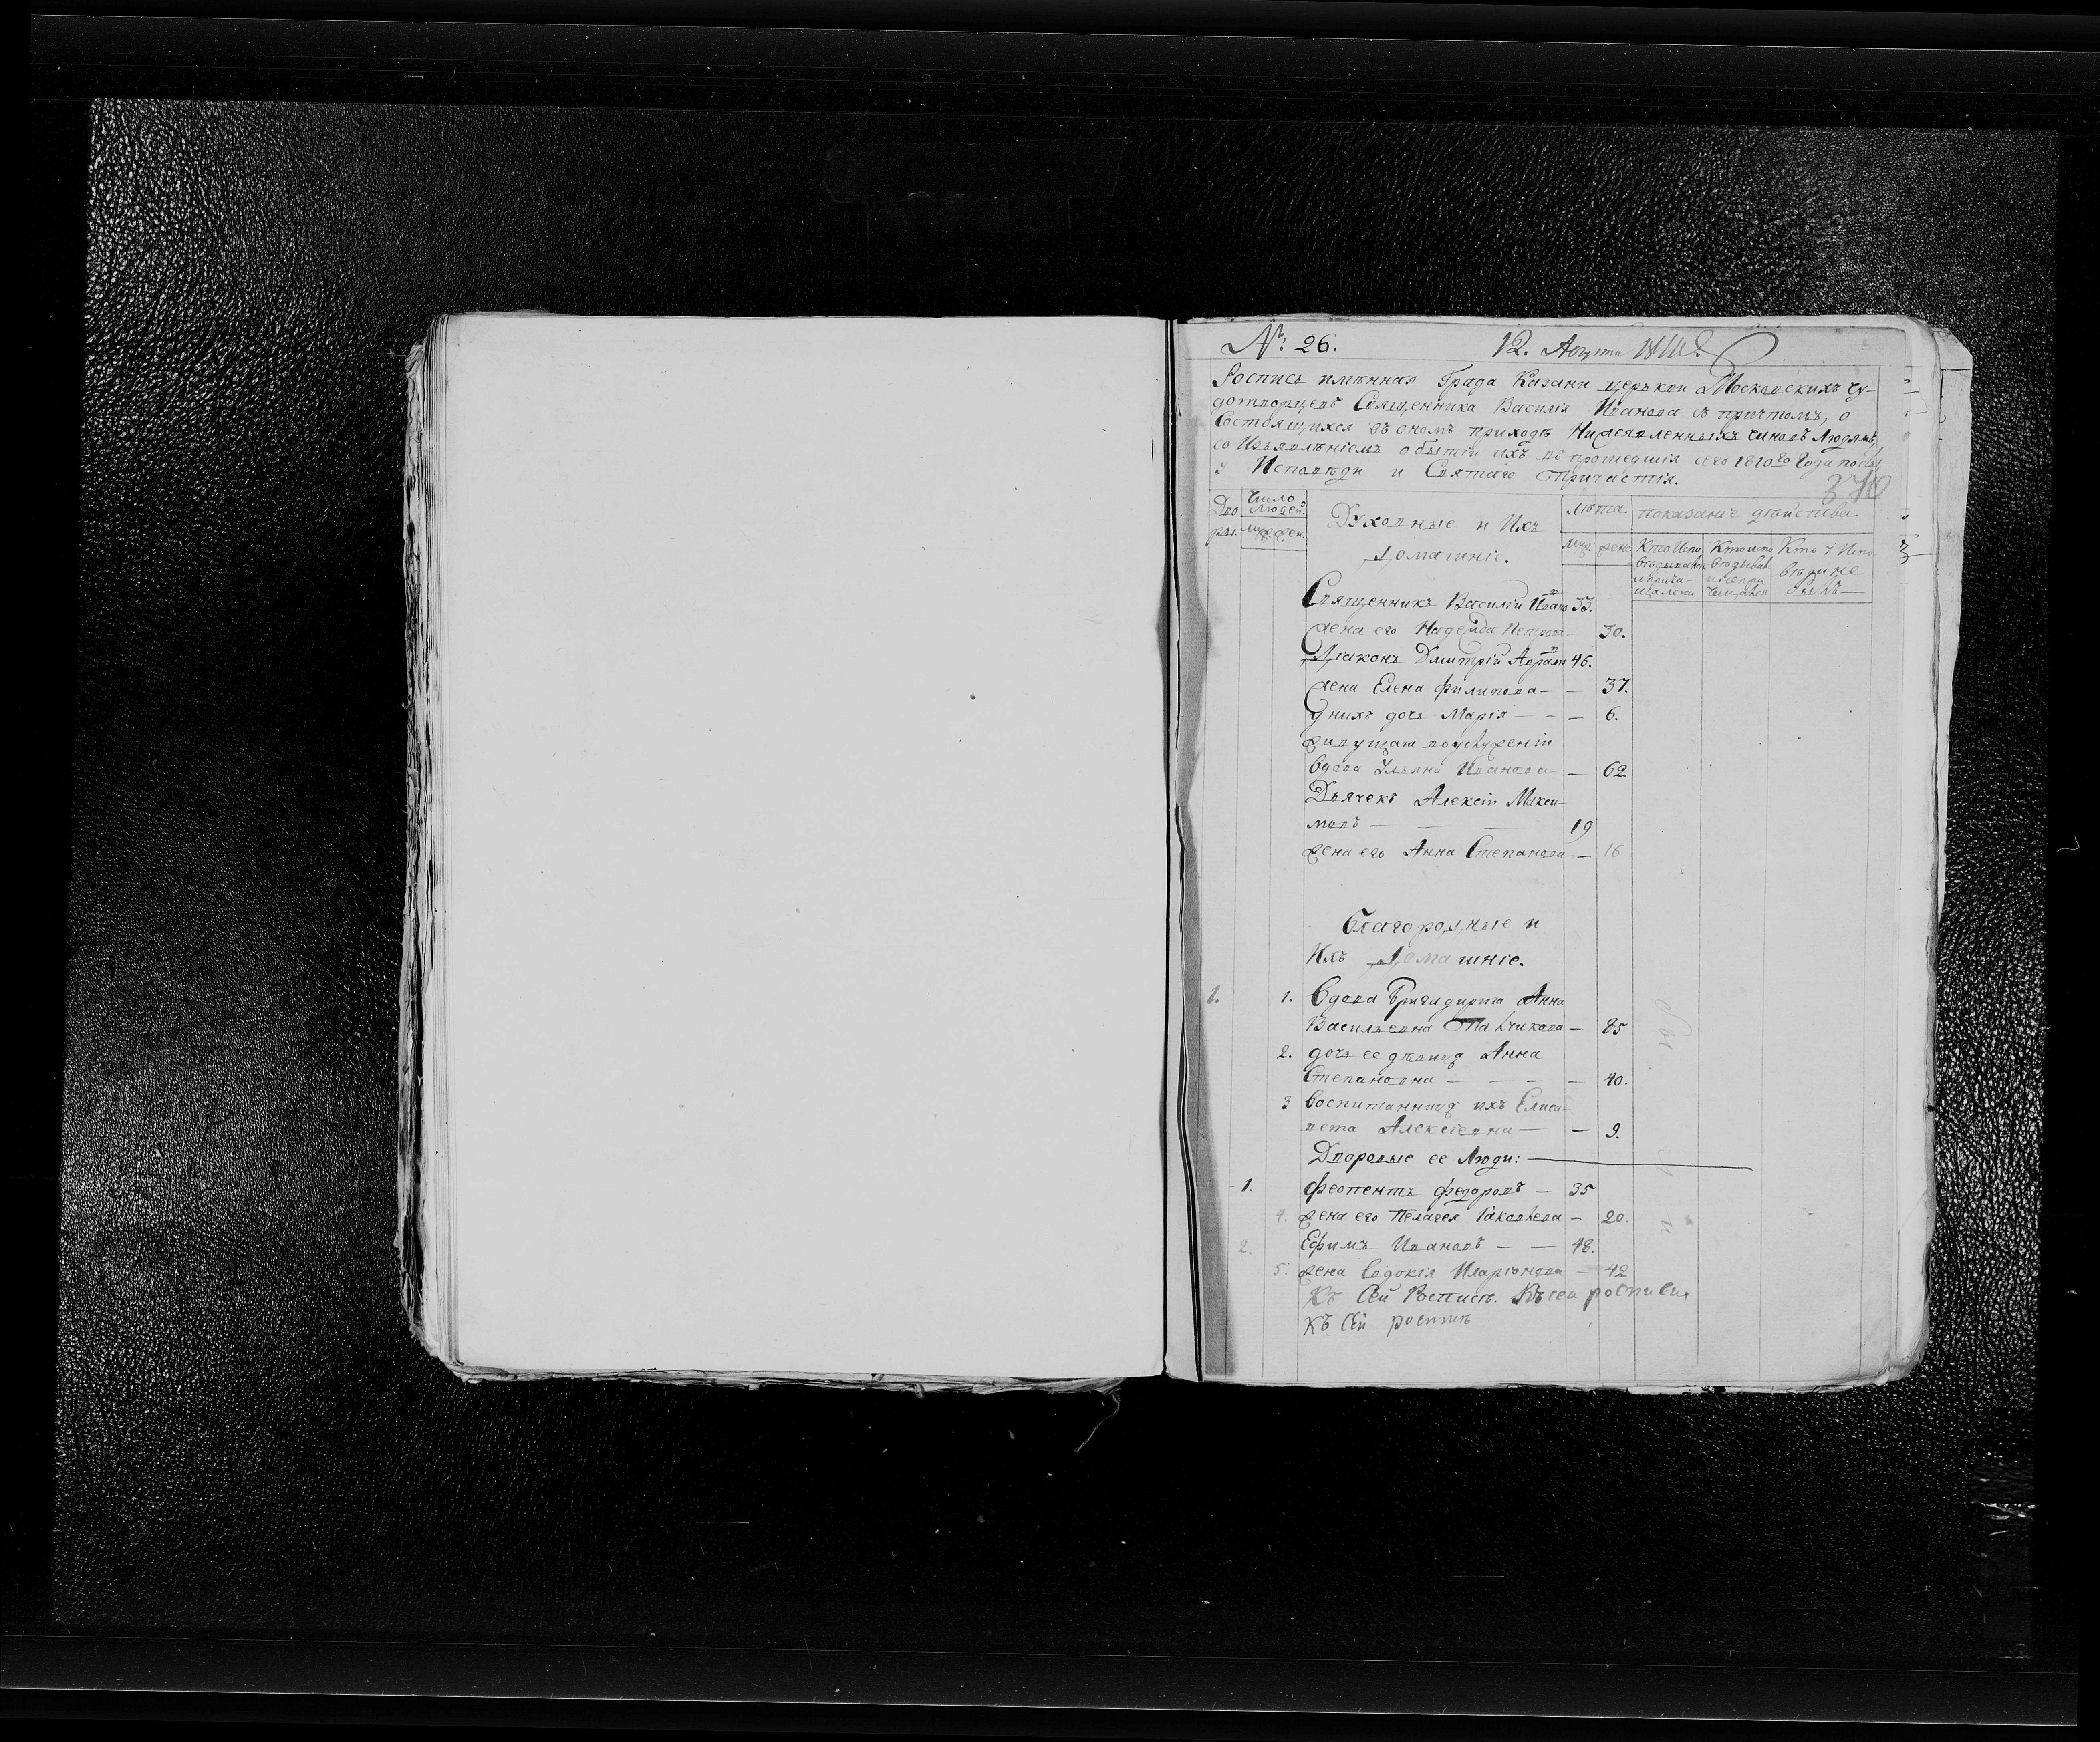 № 26. 12. Августа 1810.
Роспись имѣнная Града Казани церькви Московскихъ чу-
дотворцевъ Священника Василія Иванова съ притчомъ, о
Состоящихся въ ономъ приходѣ Нижеявленныхъ чиновъ Людямъ,
со Изъявлѣніемъ обытіи ихъ въ прошедшія сего 1810го Года посты
у Исповѣди и Святаго Причастія.
370
Дво
ры.
Число
Людей.
муж. жен.
Духовные и Ихъ
домашніе.
Лѣта.
муж. жен.
показаніе дѣйства.
Кто Испо
вѣдывался
и прича-
щалсь
Кто испо
вѣдывал
и не при
чащался
Кто у Испо
вѣди не
былъ
Священникъ Василій Иван 33.
жена его Надежда Петрова 30.
Діаконъ Дмитрій Аврам 46.
жена Елена филипова — — 37.
у нихъ дочь Марія — — — 6.
живущая
вдова Ульяна Иванова — — 62
Дьячекъ Алексій Макси-
мовъ — — — 19
жена его Анна Степанова — 16
Благородные и
Ихъ Домашніе.
1. 1. Вдова Бригадирша Анна
Васильевна — 85
2. дочь ее дѣвица Анна
Степановна — — — — 40.
3 воспитанница ихъ Елиса-
вета Алексѣевна — — 9.
Дворовые ее Люди: —
1. феопентъ федоровъ — 35
4. жена его Пелагея Яковлева — 20.
2. Ефимъ Ивановъ — — 48.
5. жена Евдокія Иларіонова — 42
Къ Сей Росписѣ. Къ сей росписи
къ Сей росписѣ